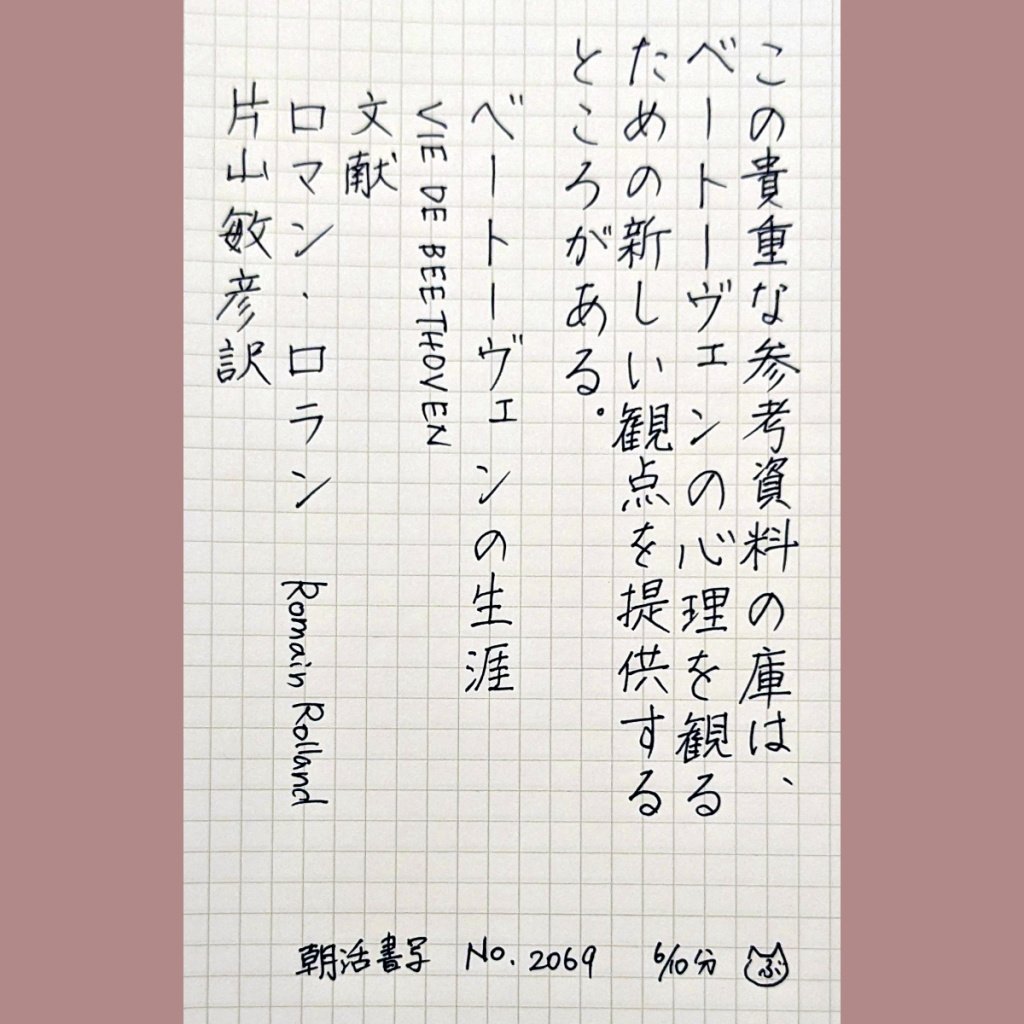 この貴重な参考資料の庫は、
ベートーヴェンの心理を観る
ための新しい観点を提供する
ところがある。
ベートーヴェンの生涯
VIE DE BEETHOVEN
文献
ロマン・ロラン Romain Rolland
片山敏彦訳
朝活書写 No. 2069 6/10分 ぶ